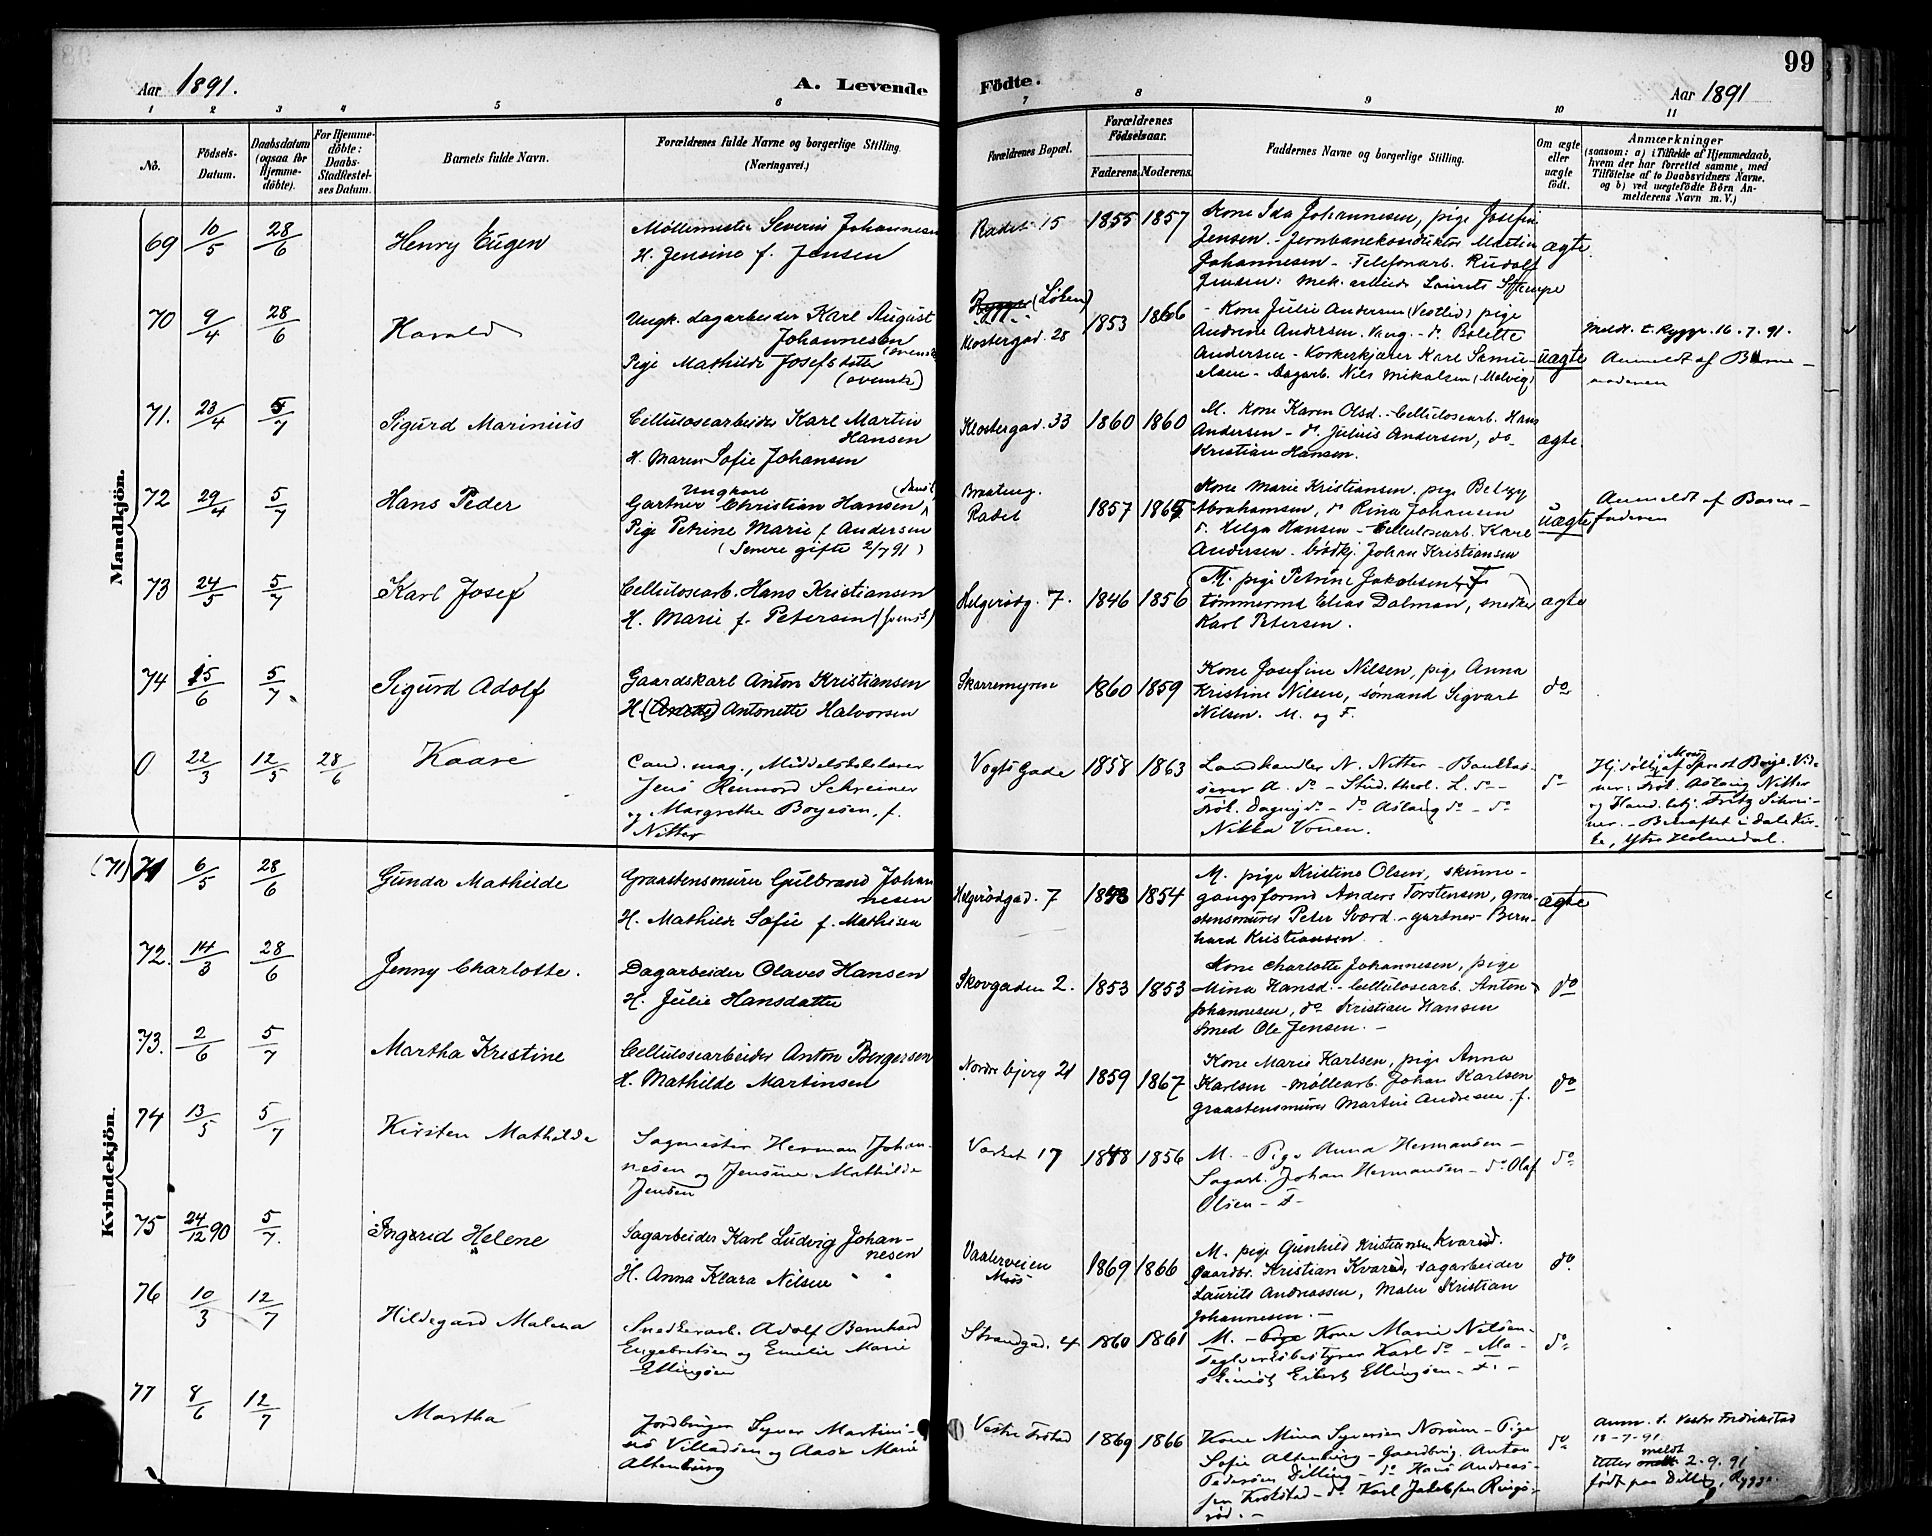 Aar 1891.
A. Levende
Födte.
Aar 1891
99
1 2 3 4 5 6 7 8 9 10 11
No.
Födsels-
Datum.
Daabsdatum
(ogsaa for
Hjemme-
döbte).
For Hjemme-
döbte:
Daabs-
Stadfæstel-
ses Datum.
Barnets fulde Navn.
Forældrenes fulde Navne og borgerlige Stilling.
(Næringsvei.)
Forældrenes Bopæl.
Forældrenes
Födselsaar.
Faderens. Moderens.
Faddernes Navne og borgerlige Stilling.
Om ægte
eller
uægte
födt.
Anmærkninger
(saasom: a) i Tilfælde af Hjemmedaab,
hvem der har forrettet samme, med
Tilföielse af to Daabsvidners Navne.
og b) ved uægtefödte Börn An-
melderens Navn m. V.)
Mandkjön.
69 10/5 28/6 Henry Eugen
Møllemester Severin Johannesen
H. Jensine f. Jensen
Radet 15 1855 1857
Kone Ida Johannesen, pige Josefine
Jensen. - Jernbanekonduktør Martin
Johannesen - Telefonarb. Rudolf
Jensen: Mek. arbeider Laurits
ægte
70 9/4 28/6 Harald
Ungk. dagarbeider Karl August
Johannesen (svensk
Pige Mathilde Josefsdatter
(svensk)
Rygge (Løken)
Klostergad. 28 1853 1866
- Kone Julie Andersen (Vestlid) pige
Andrine Andersen. Vang. - do Bolette
Andersen - Korkskjærer Karl Samu-
elsen - Dagarb. Nils Mikalsen (Molvig)
uægte
Meldt t. Rygge. 16.7.91.
Anmeldt af Barne-
moderen
71. 23/4 5/7 Sigurd Marinius
Cellulosearbeider Karl Martin
Hansen
H. Maren Sofie Johansen
Klostergad. 33 1860 1860
M. Kone Karen Olsd. - Cellulosearb. Hans
Andersen - do. Julius Andersen, do
Kristian Hansen.
ægte
72 29/4 5/7 Hans Peder
Ungkarl (dansk)
Gartner Christian Hansen
Pige Petrine Marie f. Andersen
(Senere gifte 2/7 91)
Braateng.
Radet 1857 1865
Kone Marie Kristiansen. pige Betzy
Abrahamsen, do Rina Johansen
do. Helga Hansen - Cellulosearb. Karl
Andersen. brødkj. Johan Kristiansen
uægte
Anmeldt af Barne-
faderen
73 24/5 5/7 Karl Josef
Cellulosearb. Hans Kristiansen
H. Marie f. Petersen (svensk)
Helgerødg. 7. 1846 1856
M. pige Petrine Jakobsen, F
tømmermd Elias Dalman, snedker
Karl Petersen.
ægte
74 15/6 5/7 Sigurd Adolf
Gaardskarl Anton Kristiansen
H. Antonette Halvorsen
Skarremyren 1860 1859
Kone Josefine Nilsen, pige Anna
Kristine Nilsen, sømand Sigvart
Nilsen. M. og F.
do.
0 22/3 12/5 28/6 Kaare
Cand. mag., Middelskolelærer
Jens Schreiner
og Margrethe Boyesen, f.
Nitter
Vogts Gade 1858 1863
Landhandler N. Nitter - Bankkas-
serer A. do - Stud. theol. L. do -
Frøk. Dagny do - do Aslaug do - do
Nikka Vonen.
do
i Moss
Hj. døbt af Sprst Vid-
ner: Frøk. Aslaug Nitter
og Hand. betj. Fritz Schrei-
ner. - Bekræftet i Dale Kir-
ke, Ytre Holmedal.
Kvindekjön.
(71) 71 6/5 28/6 Gunda Mathilde
Graastensmurer Gulbrand Johan
nesen
H. Mathilde Sofie f. Mathisen
Helgerødgad. 7 1853 1854
M. pige Kristine Olsen, skinne-
gangsformd Anders Torstensen, graa-
stensmurer Peter Sværd. - gartner Bern-
hard Kristiansen.
ægte
72. 14/3 28/6 Jenny Charlotte.
Dagarbeider Olaves Hansen
H. Julie Hansdatter
Skovgaden 2. 1853 1853
Kone Charlotte Johannesen, pige
Mina Hansd. - Cellulosearb. Anton
Johannesen, do Kristian Hansen
Smed Ole Jensen. -
do
73. 2/6 5/7 Martha Kristine
Cellulosearbeider Anton Bergersen
H. Mathilde Martinsen
Nordre bjerg 21 1859 1867
Kone Marie Karlsen, pige Anna
Karlsen - møllearb. Johan Karlsen
graastensmurer Martin Andresen. f.
do
74 13/5 5/7 Kirsten Mathilde
Sagmester Herman Johan-
nesen og Jensine Mathilde
Jensen
Værket 17 1848 1856
M. - Pige Anna Hermansen -
Sagarb. Johan Hermansen - do Olaf
Olsen - F.
do
75 24/12 90 5/7. Ingerid Helene
Sagarbeider Karl Ludvig Johan-
nesen
H. Anna Klara Nilsen " "
Vaalerveien
Moss 1869 1866
M. pige Gunhild Kristiansen Kvarød.
Gaardbr. Kristian Kvarød, sagarbeider
Laurits Andreassen, Maler Kristian
Johannesen. -
do.
76 10/3 12/7 Hildegard Malena
Snedkerarb. Adolf Bernhard
Engebretsen og Emilie Marie
Ellingsen
Strandgad. 4 1860 1861
M. - Kone Marie Nilsen -
Teglverksbestyrer Karl do - Ma-
skinist Eibert Ellingsen - F. -
do
77 8/6 12/7 Martha
Jordbruger Syver Martini-
us Villadsen og Aase Marie
Altenburg
Vestre Frstad 1869 1866
Kone Mina Syversen Norum - Pige
Sofie Altenburg - Gaardbrug. Anton
Pedersen Dilling - do Hans Andreas-
sen Krokstad - do Karl Jakobsen Rings-
rød. -
do
Anm. t. Vestre Fredrikstad
18-7-91.
Atter meldt 2.9.91
født paa Dilling, Rygge.